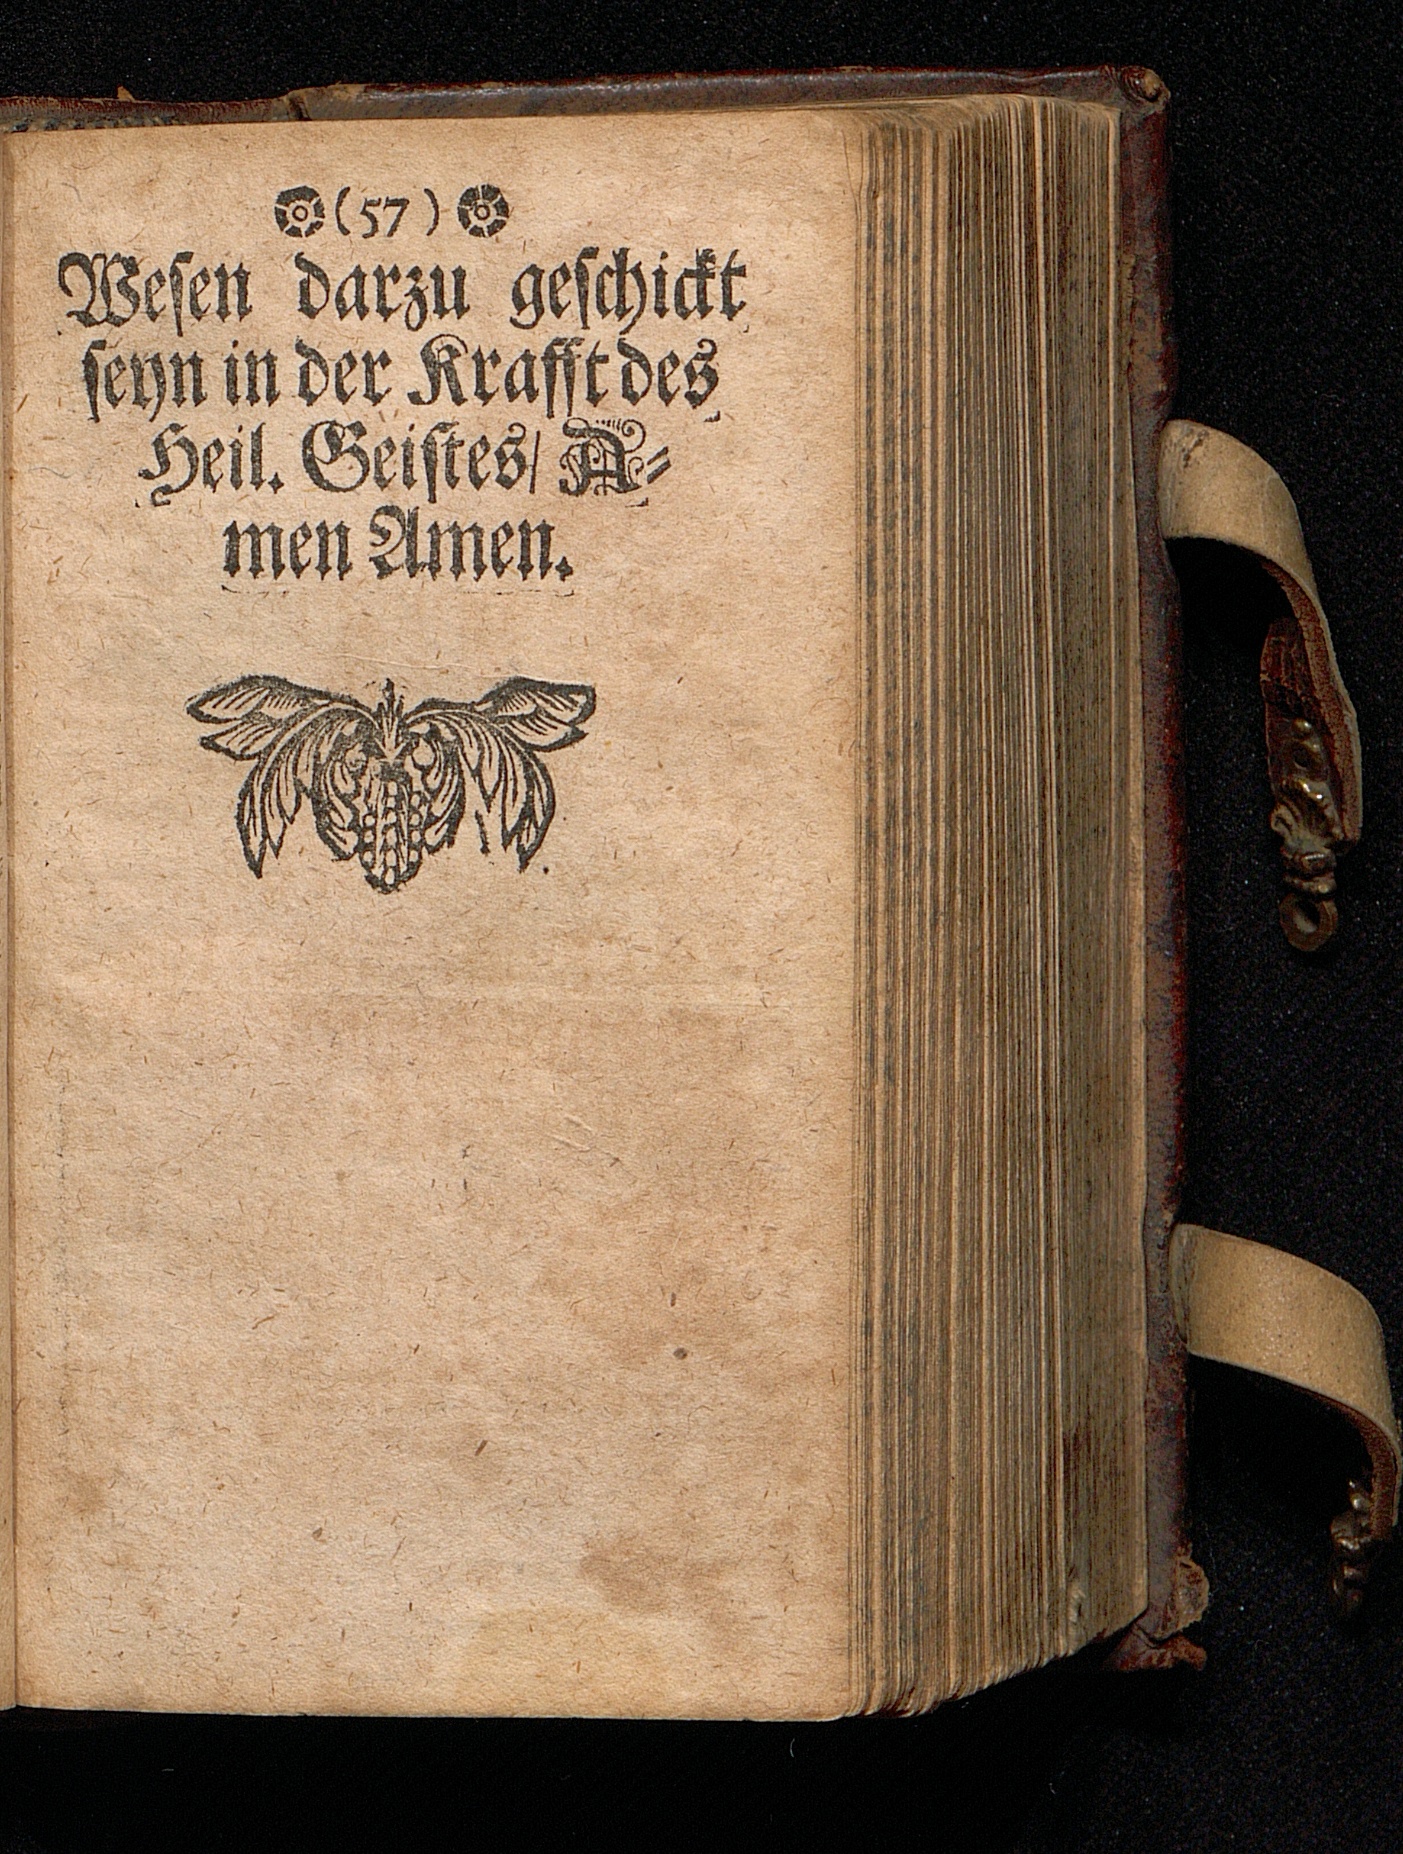 (57)
Wesen darzu geschickt
seyn in der Krafft des
Heil. Geistes/ A-
men Amen.